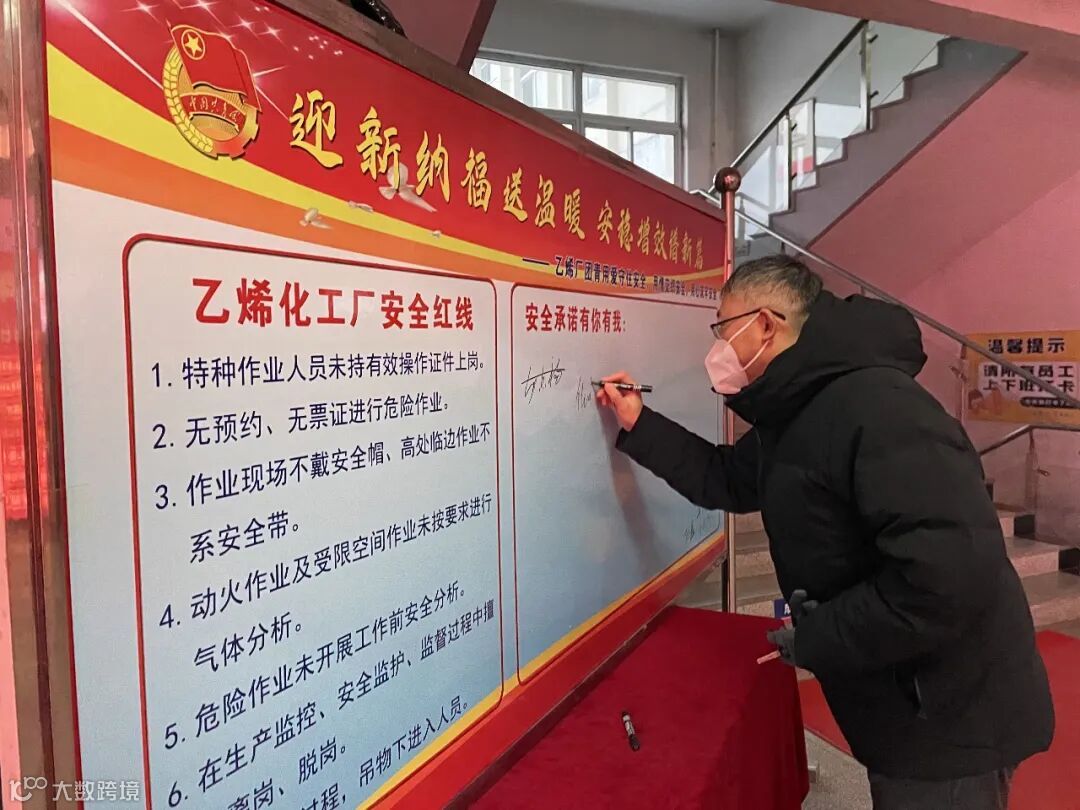 中国共青团
迎新纳福送温暖 安稳增效谱新篇
—— 乙烯厂团青用爱守住安全
乙烯化工厂安全红线
1. 特种作业人员未持有效操作证件上岗。
2. 无预约、无票证进行危险作业。
3. 作业现场不戴安全帽、高处临边作业不
系安全带。
4. 动火作业及受限空间作业未按要求进行
气体分析。
5. 危险作业未开展工作前安全分析。
6. 在生产监控、安全监护、监督过程中擅
离岗、脱岗。
过程，吊物下进入人员。
安全承诺有你有我：
温馨提示
请所有员工
上下班打卡
大数跨境